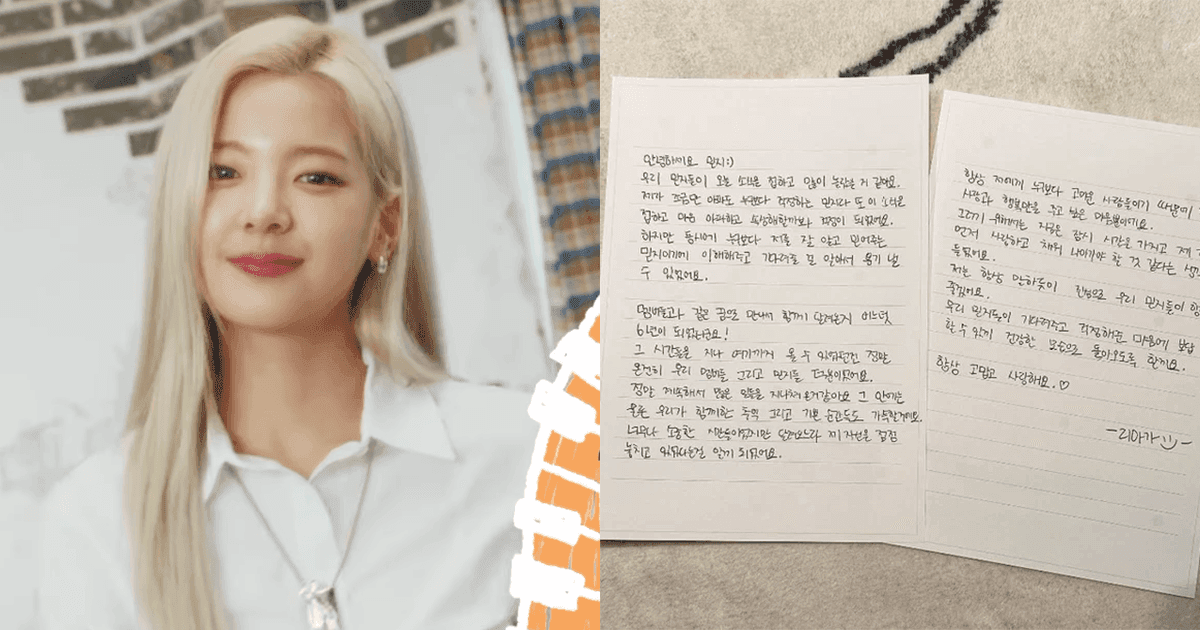 안녕하세요 믿지:)
우리 믿지들이 오늘 소식을 접하고 많이 놀랐을 거 같아요.
제가 조금만 아파도 누구보다 걱정하는 믿지라 또 이 소식을
접하고 마음 아파하고 속상해할까봐 걱정이 되었어요.
하지만 동시에 누구보다 저를 잘 알고 믿어주는
믿지이기에 이해해주고 기다려줄 걸 알아서 용기 낼
수 있었어요.
멤버들과 같은 꿈으로 만나서 함께 달려온지 어느덧
6년이 되었더라고요!
그 시간들을 지나 여기까지 올 수 있었던건 정말
온전히 우리 멤버들 그리고 믿지들 덕분이었어요.
정말 계속해서 많은 일들을 지나쳐온거같아요 그 안에는
물론 우리가 함께한 추억 그리고 기쁜 순간들도 가득한거에요.
너무나 소중한 시간들이었지만 달려오느라 제 자신을 점점
놓치고 있었다는걸 알게 되었어요.
항상 저에게 누구보다 고마운 사람들이기 때문에
사랑과 행복만을 주고 싶은 마음뿐이에요.
그러기 위해서는 지금은 잠시 시간을 가지고 제
먼저 사랑하고 채워 나아가야 할 것 같다는
들었어요.
저는 항상 말하듯이 진심으로 우리 믿지들이
좋겠어요.
우리 믿지들이 기다려주고 걱정해준 마음에 보답
할 수 있게 건강한 모습으로 돌아오도록 할게요.
항상 고맙고 사랑해요.♡
-리아가 :)-